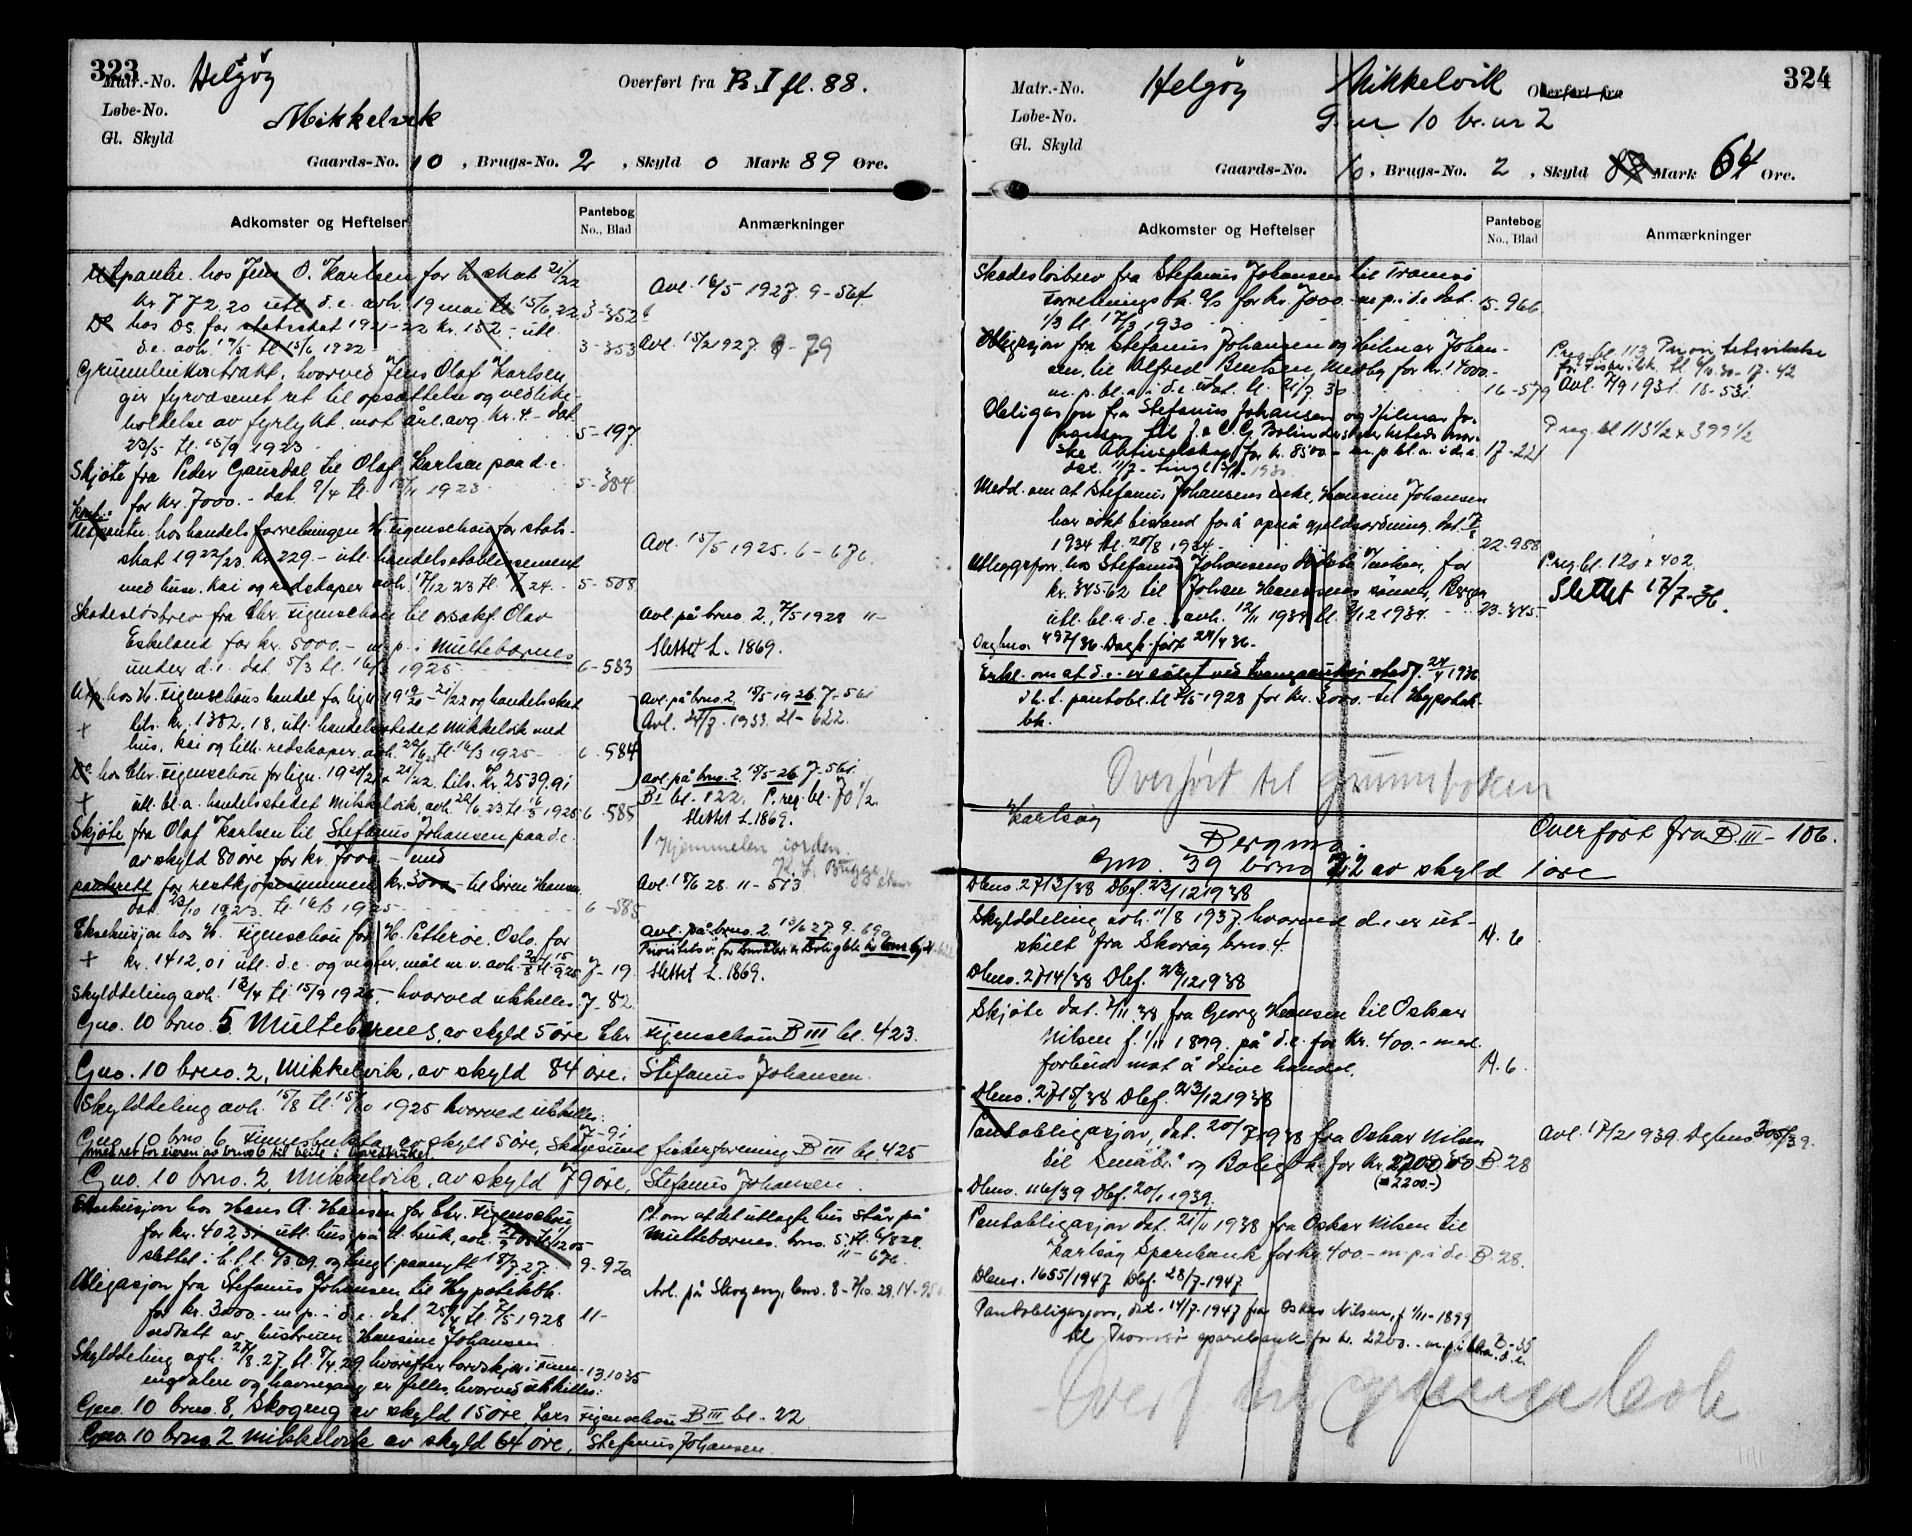 323
Matr.-No. Helgøy
Overført fra B. I fl. 88.
Løbe-No.
Mikkelvik
Gl. Skyld
Gaards-No. 10, Brugs-No. 2, Skyld 0 Mark 89 Øre.
Adkomster og Heftelser
Pantebog No., Blad
Anmærkninger
Utpantn. hos Jens O. Karlsen for skat 21/22
kr 772.20 utl. d.e. avh. 19 mai tl 15/6 22 3-352
Avl. 16/5 1927. 9-564
Do hos Ds. for statsskat 1921-22 kr. 152.- utl.
d.e. avh. 19/5 tl 15/6 1922 3-353
Avl. 15/2 1927 9-79
Grunnleiekontrakt, hvorved Jens Olaf Karlsen
gir fyrvæsenet ret til opsættelse og vedlike-
holdelse av fyrlykt mot årl. avg. kr. 4.- dat.
23/5 tl. 15/9 1923 5-197
Skjøte fra Peder Gaardal til Olaf Karlsen paa d.e.
for kr. 7000.- dat. 9/4 tl. 15/11 1923 5-384
Utpantn. hos handelsforretningen H. Figenschou for stats-
skat 1922/23. kr. 229.- utl. handelsetablissement
Avl. 15/5 1925. 6-676.
med huse, kai og redskaper avh. 17/12 23 tl. 24. 5-508
Skadesløsbrev fra Chr. Figenschou til o.r.sakf. Olav
Eskeland for kr. 5000.- m.p. i Multebærnes
under d.e. dat. 5/3 tl. 16/3 1925 6-583
Avl på brno. 2, 7/5 1928 11-
Slettet L. 1869.
Utp. hos H. Figenschous handel for lign. 19 19/20 - 21/22 og handelsskat
tils. kr. 1382,18, utl. handelsstedet Mikkelvik med
hus, kai og tilh. redskaper avh. 22/6 23 tl. 16/3 1925 6-584
Avl. på brno. 2 15/5 1926 7-561
Avl. 27/7. 1933. 21-622.
Do hos Chr. Figenschou for lign. 1920/21 & 21/22 tils. kr. 2539,91
utl. bl.a. handelsstedet Mikkelvik, avh. 22/6 23 tl. 16/3 1925 6-585
Avl på brno. 2 15/5-26 7-561.
B I bl. 122. P.reg. bl. 70 1/2.
Slettet L. 1869.
Skjøte fra Olaf Karlsen til Stefanus Johansen paa d.e.
av skyld 80 øre for kr. 7000.- med
Hjemmelen i orden.
panterett for restkjøpesummen kr. 3000.- til Søren Hansen
dat. 23/10 1923. tl. 16/3 1925 6-585
Avl. 15/6 28. 11-573
Eksekusjon hos H. Figenschou for H. Petterøe, Oslo, for
kr. 1412,01 utl. d.e. og vegner, mål nr. v. avh. 20/5 tl. 15/9 25 7-19.
Avl. på brno. 2 13/6 27. 9-690
Slettet L. 1869.
Skylddeling avh. 18/4 tl. 15/9 1925,- hvorved utskilles: 7-82.
Gno. 10 brno. 5 Multebærnes, av skyld 5 øre Chr. Figenschou B III bl. 423.
Gno. 10 brno. 2, Mikkelvik, av skyld 84 øre. Stefanus Johansen.
Skylddeling avh. 15/8 tl. 15/10 1925 hvorved utskilles: 7-91
Gno. 10 brno. 6 Finnesbukta, av skyld 5 øre, Skogsund fiskerforening B III bl. 425
med ret for eieren av brno 6 til beite i hovedbruket.
Gno. 10 brno. 2, Mikkelvik, av skyld 79 øre, Stefanus Johansen.
Eksekusjon hos Hans A. Hansen for Chr. Figenschou
for kr. 402.31 utl. hus på d. bruk, avh.
slettet i h.t. l. 4/3.69. og tingl. paanytt 18/7.27. 9-970
Pt. om at det utlagte hus står på
Multebærnes. brno. 5. tl. 6/8 28.
11-676.
Obligasjon fra Stefanus Johansen til Hypotekbk.
for kr. 3000.- m.p. i d.e. dat. 25/4 tl. 7/5 1928 11-
vedtatt av hustruen Hansine Johansen
Avl. på Skogeng, brno. 8-7/10.29. 14-950
Skylddeling avh. 27/8.27 tl. 8/4.29. hvorefter
og havnegang er felles, hvorved utskilles: 13.1035
Gno. 10 brno. 8, Skogeng av skyld 15 øre, Lars Figenschou B III bl. 22
Gno. 10 brno. 2 Mikkelvik av skyld 64 øre, Stefanus Johansen.
324
Matr.-No. Helgøy Mikkelvik Overført fra
Løbe-No. G.nr 10 br.nr 2
Gl. Skyld
Gaards-No. 10, Brugs-No. 2, Skyld 89 Mark 64 Øre.
Adkomster og Heftelser
Pantebog No., Blad
Anmærkninger
Skadesløsbrev fra Stefanus Johansen til Tromsø
Forretningsbk. A/S for kr. 7000.- m.p. i d.e. dat.
1/3 tl. 17/3 1930 15-966
Obligasjon fra Stefanus Johansen og Hilmar Johan-
sen til Alfred Bentsen, Medby for kr. 14000.-
m.p. bl.a. i d.e. dat. tl. 21/7 30 16-579
P.reg. bl. 113 Prioritetsvikelse
tl. 6/10.30-17-42
Avl. 7/9 1931. 18-531
Obligasjon fra Stefanus Johansen og Hilmar Jo-
hansen til J. & C. G. Bolinders verksteds nor-
ske Aktieselskap for kr. 8500.- m.p. bl.a. i d.e. 17-221
dat. 11/7- tingl. 1930
P.reg. bl 113 1/2 & 399 1/2
Medd. om at Stefanus Johansens enke, Hansine Johansen
har søkt bistand for å opnå gjeldsordning, dat. 17/8
1934 tl. 20/8 1934 22-958
Utleggsforr. hos Stefanus Johansens dødsbo Tussøy, for
kr. 345.62 til Johan Hansens sønner, Bergen
utl. bl.a. d.e. avh. 12/11 1934 tl. 3/12 1934 23-345
P.reg. bl. 120 & 402
Slettet 17/7-36.
Dagbno. 497/36 Dagb.ført 24/4 36.
Erkl. om at d.e. er solgt ved tvangsauksjon stadf. 24/4 1936
i h.t. pantobl. tl. 7/5 1928 for kr. 3000.- til Hypotek-
bk.
Overført til grunnboken
Karlsøy
Bergmo
Overført fra B. III - 106.
Gno. 39 brno 22 av skyld 1 øre
Dbno. 2713/38 Dbf. 23/12 1938
Skylddeling avh. 11/8 1937 hvorved d.e. er ut-
skilt fra Skorøy brno. 4. A. 6
Dbno. 2714/38 Dbf. 23/12 1938
Skjøte dat. 7/11.38 fra Georg Hansen til Oskar
Nilsen f. 1/11 1899. på d.e. for kr. 400.- med
forbud mot å drive handel. A. 6.
Dbno. 2715/38 Dbf. 23/12 1938
Pantobligasjon, dat. 20/7 1938 fra Oskar Nilsen
til Småbr. og Boligbk. for kr. 2700,00 B. 28
(= 2200.-)
Avl. 17/2 1939. Dgbno 305/39.
Dbno. 116/39 Dbf. 20/1 1939.
Pantobligasjon dat. 21/11 1938 fra Oskar Nilsen til
Karlsøy Sparebank for kr. 400.- m.p. i d.e. B. 28.
Dbnr. 1655/1947 Dbf. 28/7-1947
Pantobligasjon, dat. 14/7-1947 fra Oskar Nilsen, f. 1/11-1899
til Tromsø sparebank for kr. 2200.- m.p. i bl.a. d.e. B-35
Overf. til grunnbok